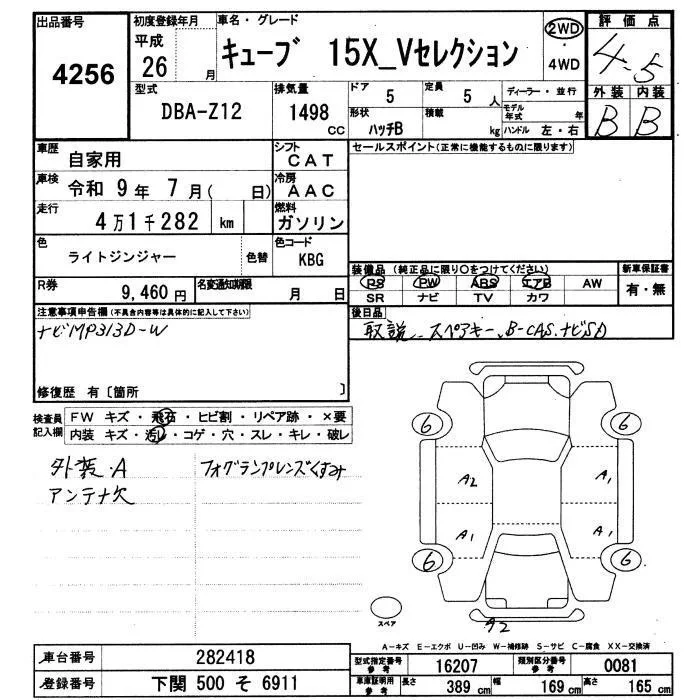 出品番号 初度登録年月 車名・グレード 2WD 評価点
4256 平成 26 月 キューブ 15X_Vセレクション 4WD 4.5
型式 排気量 ドア 定員 ディーラー・並行 外装 内装
DBA-Z12 1498 cc 5 5 人 モデル年式 年 B B
形状 積載
ハッチB kg ハンドル 左・右
車歴 自家用 シフト CAT セールスポイント(正常に機能するものに限ります)
車検 令和 9 年 7 月( 日) 冷房 AAC
走行 4 万 1 千 282 km 燃料 ガソリン
色 ライトジンジャー 色替 色コード KBG
装備品 (純正品に限り○をつけてください) 新車保証書
R券 9,460 円 名変通知期限 月 日 PS PW ABS エアB AW 有・無
SR ナビ TV カワ
注意事項申告欄(不具合内容等は具体的に記入して下さい) 後日品
ナビMP313D-W 取説、スペアキー、B-CAS、ナビSD
修復歴 有〔箇所 〕
検査員記入欄 FW キズ・飛石・ヒビ割・リペア跡・×要
内装 キズ・汚れ・コゲ・穴・スレ・キレ・破レ
外装・A フォグランプレンズくすみ
アンテナ欠
6 6
A2 A1
A1 A1
6 6
スペア
A2
A-キズ E-エクボ U-凹み W-補修跡 S-サビ C-腐食 XX-交換済
車台番号 282418 型式指定番号 参考 16207 類別区分番号 参考 0081
登録番号 下関 500 そ 6911 車庫証明用 参考 長さ 389 cm 幅 169 cm 高さ 165 cm